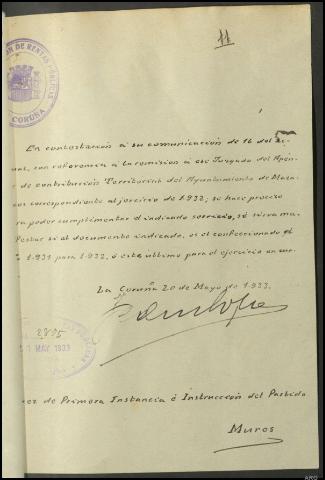 11
ON DE RENTAS PUBLICAS
CORUÑA
En contestacion á su comunicacion de 16 del ac
tual, con referencia á la remision á ese Juzgado del Apen
de contribución Territorial del Ayuntamiento de Maza
cos correspondiente al ejercicio de 1.932; se hace preciso
ra poder cumplimentar el indicado servicio, se sirva ma
festar si el documento indicado, es el confeccionado e
1.931 para 1.932, ó este ultimo para el ejercicio
La Coruña 20 de Mayo de 1.933.
2805
MAY 1933
ez de Primera Instancia é Instruccion del Partido
Muros